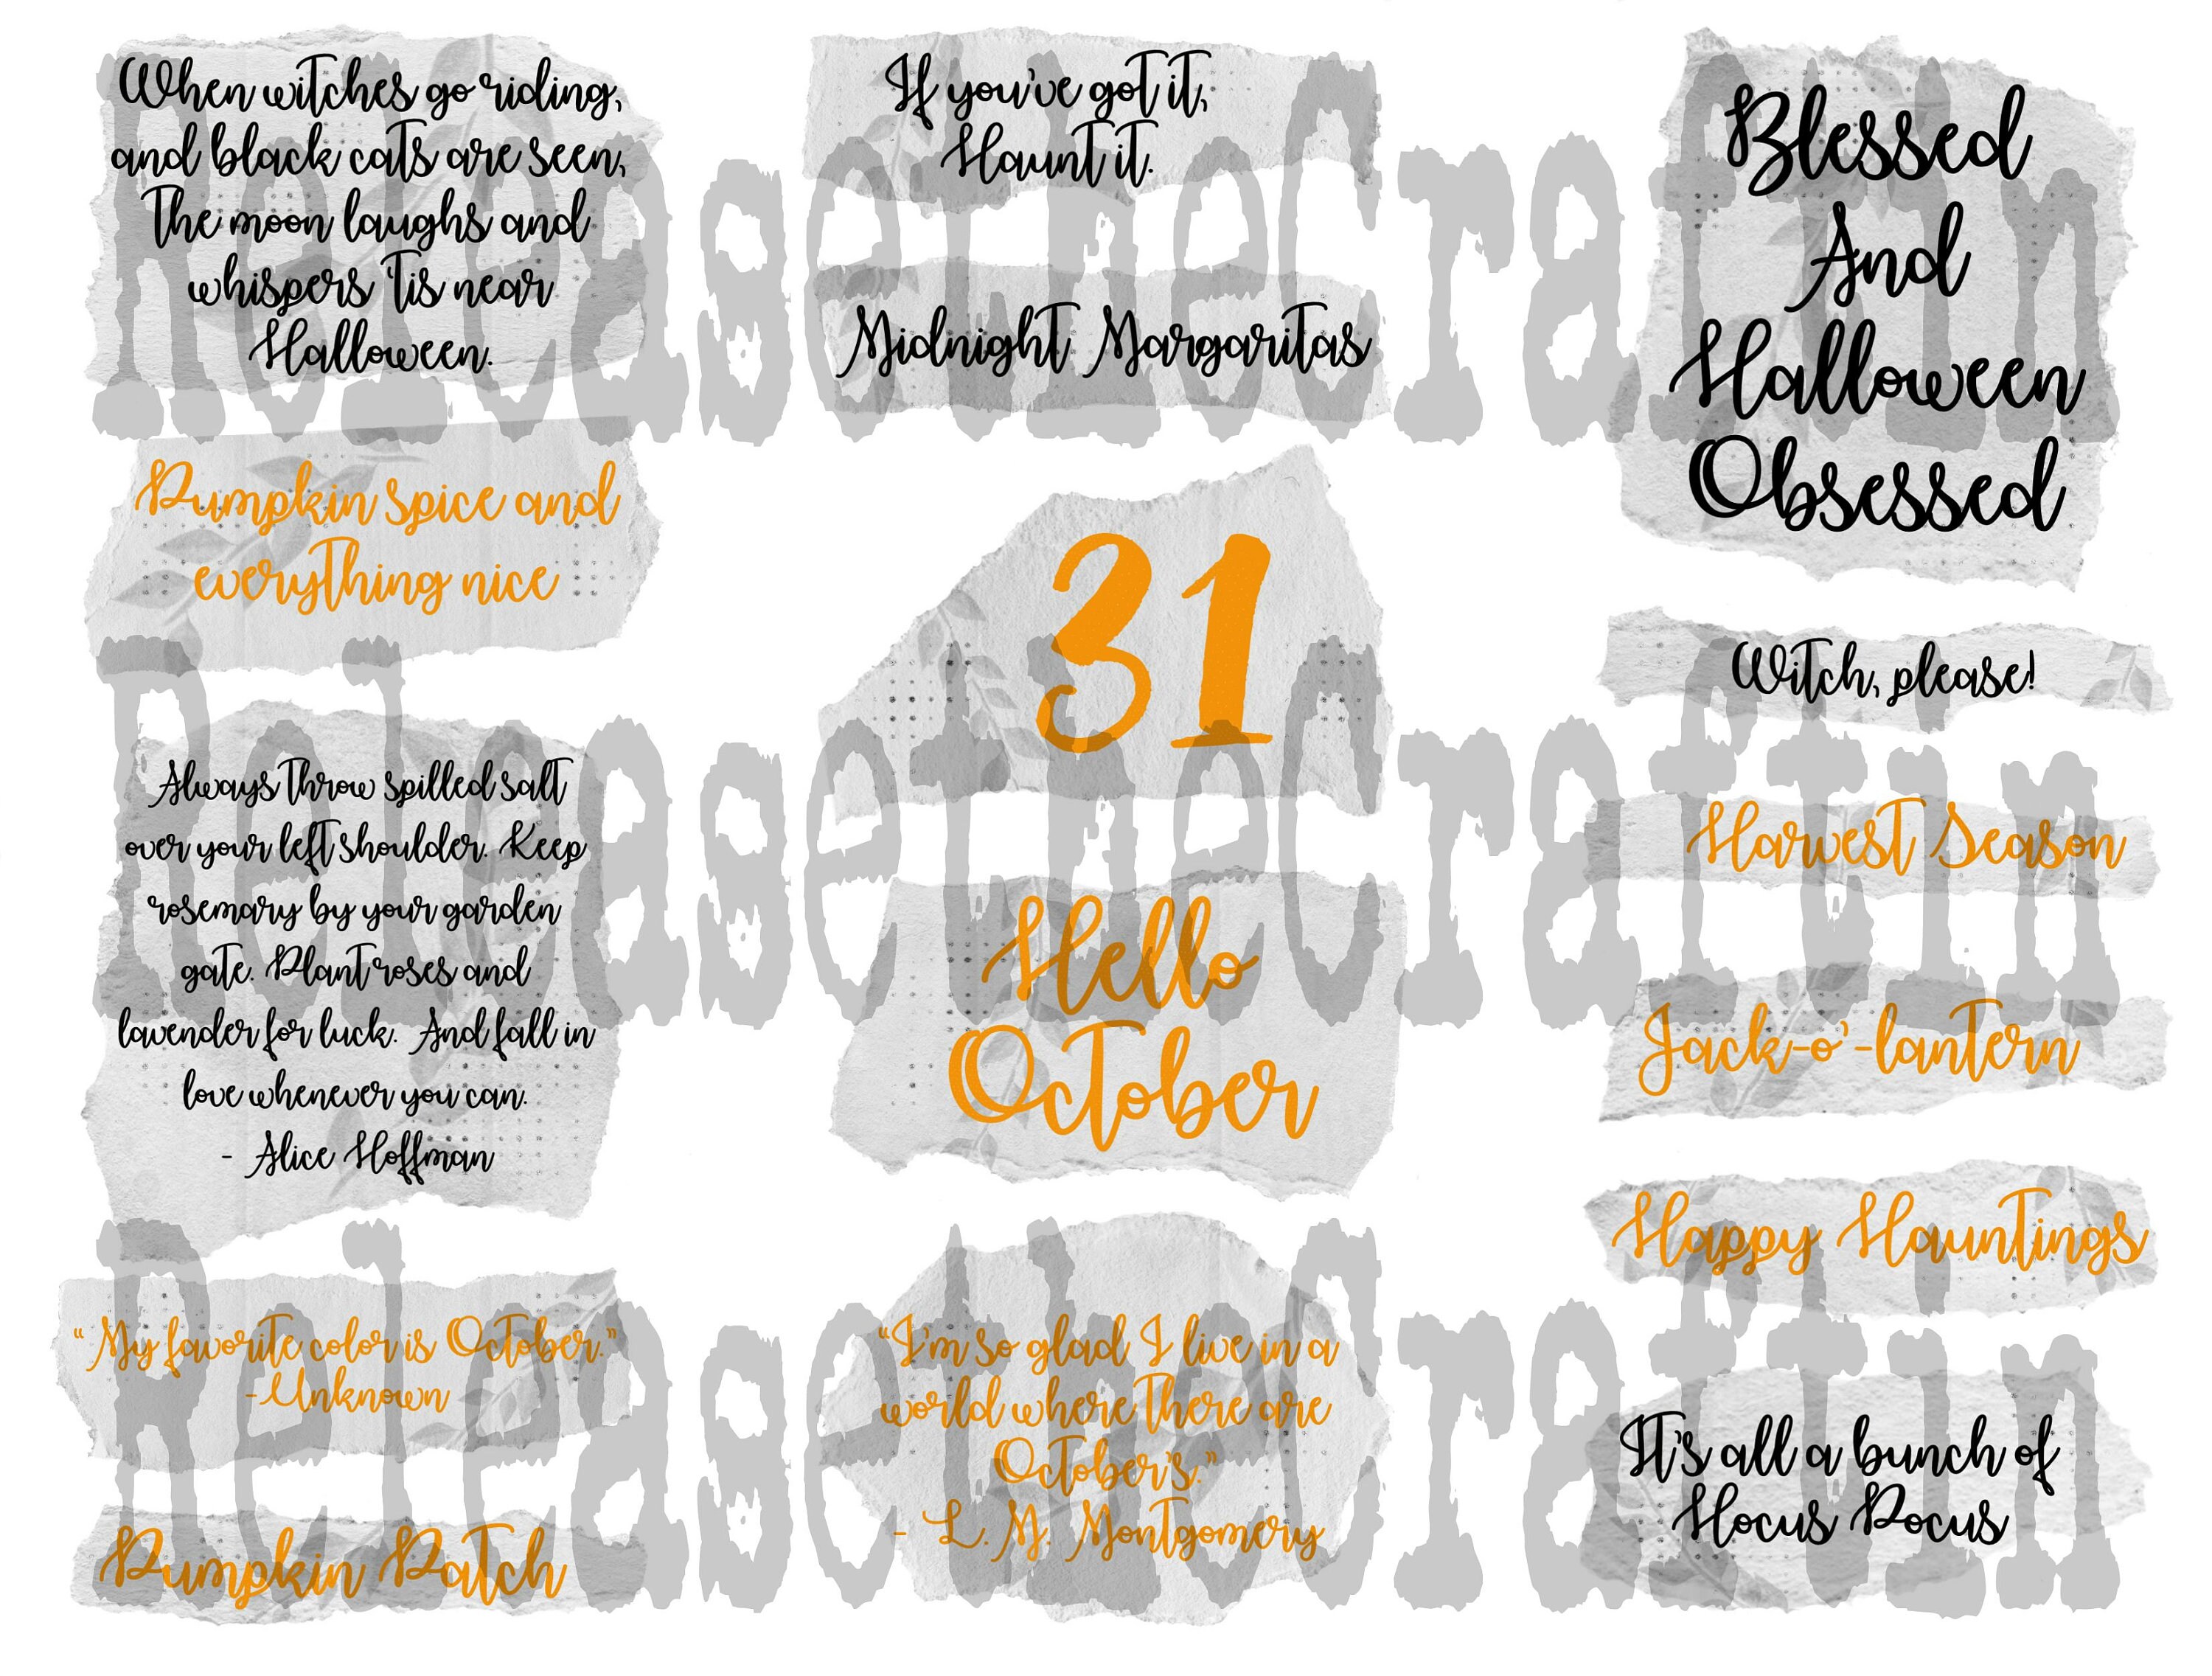 When witches go riding,
and black cats are seen,
The moon laughs and
whispers 'tis near
Halloween.
Pumpkin spice and
everything nice
Always throw spilled salt
over your left shoulder. Keep
rosemary by your garden
gate. Plant roses and
lavender for luck. And fall in
love whenever you can.
- Alice Hoffman
"My favorite color is October."
-Unknown
Pumpkin Patch
If you've got it,
Haunt it.
Midnight Margaritas
31
Hello
October
"I'm so glad I live in a
world where there are
October's."
- L. M. Montgomery
Blessed
And
Halloween
Obsessed
Witch, please!
Harvest Season
Jack-o'-lantern
Happy Hauntings
It's all a bunch of
Hocus Pocus
ReleasetheCraftin
ReleasetheCraftin
ReleasetheCraftin